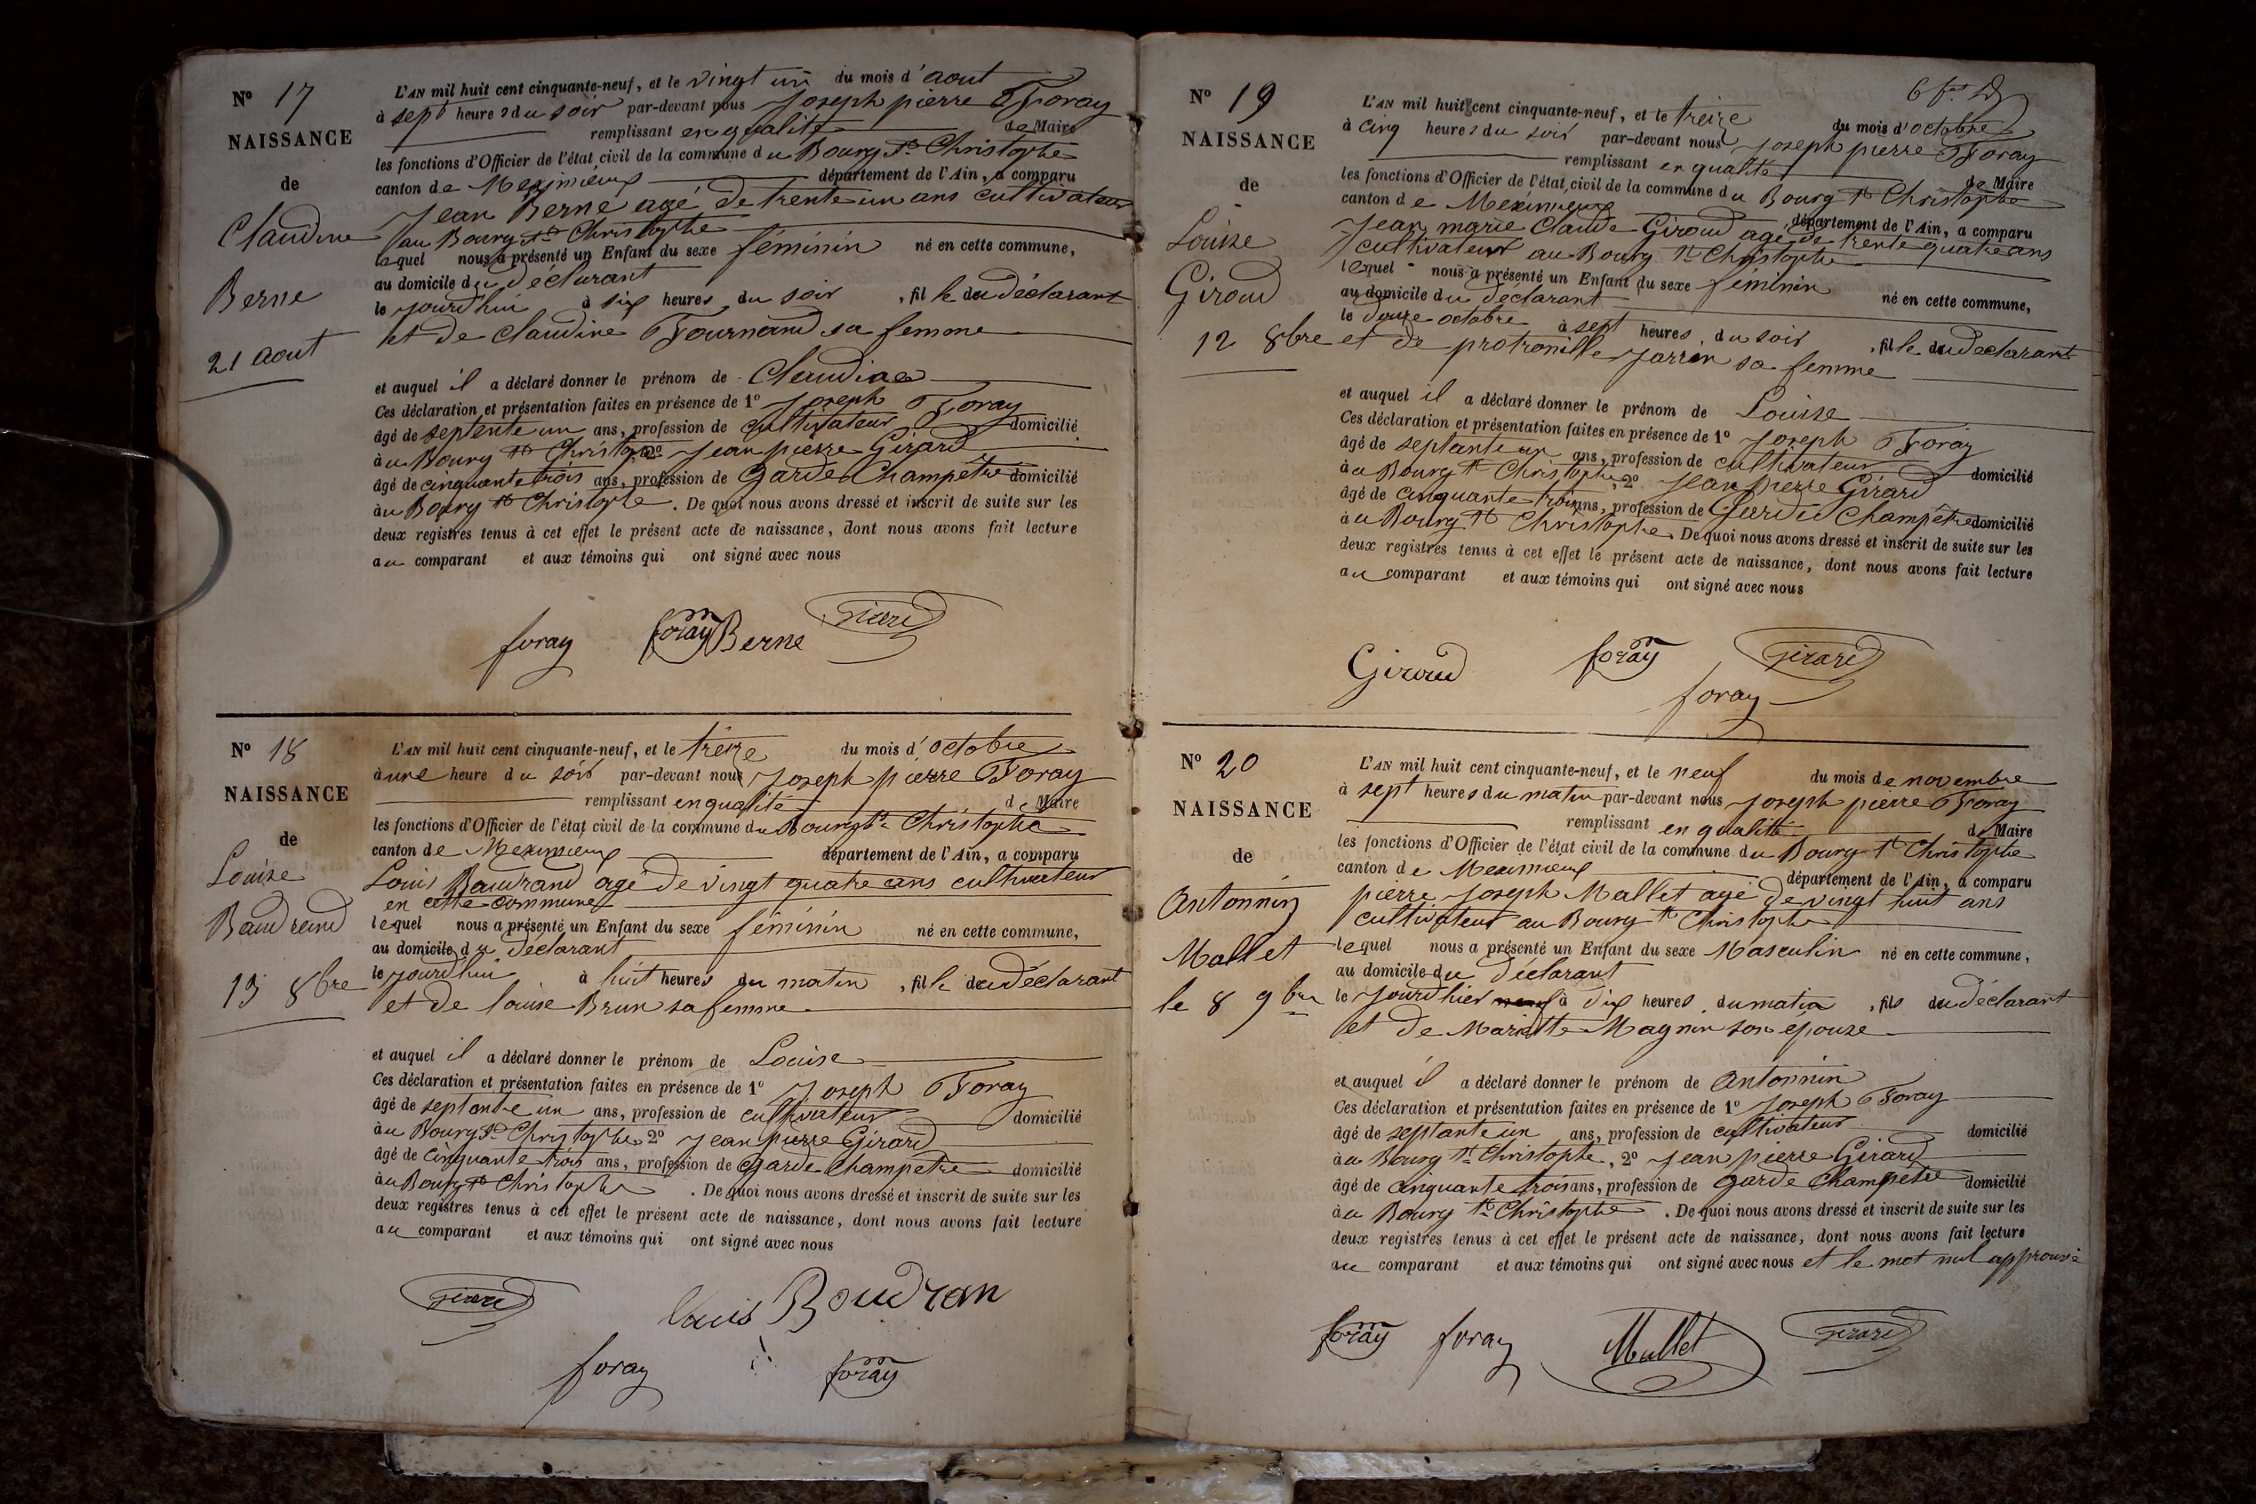 N° 17
NAISSANCE
de
Claudine
Berne
21 aout
L'AN mil huit cent cinquante-neuf, et le vingt un du mois d'aout
à sept heures du soir par-devant nous Joseph pierre Foray
remplissant en qualité de Maire
les fonctions d'Officier de l'état civil de la commune du Bourg St Christophe
canton de Meximieux département de l'Ain, a comparu
Jean Berne agé de trente un ans cultivateur
au Bourg St Christophe
lequel nous a présenté un Enfant du sexe féminin né en cette commune,
au domicile du déclarant
le jourd'hui à six heures du soir, fille du déclarant
et de Claudine Fournand sa femme
et auquel il a déclaré donner le prénom de Claudine
Ces déclaration et présentation faites en présence de 1° Joseph Foray
âgé de septente un ans, profession de cultivateur domicilié
au Bourg St Christophe, 2° Jean pierre Girard
âgé de cinquante trois ans, profession de Garde Champetre domicilié
au Bourg St Christophe. De quoi nous avons dressé et inscrit de suite sur les
deux registres tenus à cet effet le présent acte de naissance, dont nous avons fait lecture
au comparant et aux témoins qui ont signé avec nous
foray foray Berne Girard
N° 18
NAISSANCE
de
Louise
Baudrand
13 8bre
L'AN mil huit cent cinquante-neuf, et le treize du mois d'octobre
à une heure du soir par-devant nous Joseph pierre Foray
remplissant en qualité d Maire
les fonctions d'Officier de l'état civil de la commune du Bourg St Christophe
canton de Meximieux département de l'Ain, a comparu
Louis Baudrand agé de vingt quatre ans cultivateur
en cette commune
lequel nous a présenté un Enfant du sexe féminin né en cette commune,
au domicile du declarant
le jourd'hui à huit heures du matin, fille du déclarant
et de louise Brun sa femme
et auquel il a déclaré donner le prénom de Louise
Ces déclaration et présentation faites en présence de 1° Joseph Foray
âgé de septante un ans, profession de cultivateur domicilié
au Bourg St Christophe 2° Jean pierre Girard
âgé de cinquante trois ans, profession de garde Champetre domicilié
au Bourg St Christophe. De quoi nous avons dressé et inscrit de suite sur les
deux registres tenus à cet effet le présent acte de naissance, dont nous avons fait lecture
au comparant et aux témoins qui ont signé avec nous
Girard Louis Boudran
foray foray
N° 19
NAISSANCE
de
Louise
Giroud
12 8bre
L'AN mil huit cent cinquante-neuf, et le treize du mois d'octobre
à cinq heures du soir par-devant nous Joseph pierre Foray
remplissant en qualité de Maire
les fonctions d'Officier de l'état civil de la commune du Bourg St Christophe
canton de Meximieux département de l'Ain, a comparu
Jean marie Claude Giroud agé de trente quatre ans
cultivateur au Bourg St Christophe
lequel nous a présenté un Enfant du sexe féminin né en cette commune,
au domicile du déclarant
le douze octobre à sept heures du soir, fille du déclarant
et de protronille Jarrin sa femme
et auquel il a déclaré donner le prénom de Louise
Ces déclaration et présentation faites en présence de 1° Joseph Foray
âgé de septante un ans, profession de cultivateur domicilié
au Bourg St Christophe, 2° Jean pierre Girard
âgé de cinquante trois ans, profession de Garde Champêtre domicilié
au Bourg St Christophe. De quoi nous avons dressé et inscrit de suite sur les
deux registres tenus à cet effet le présent acte de naissance, dont nous avons fait lecture
au comparant et aux témoins qui ont signé avec nous
Giroud foray Girard
foray
N° 20
NAISSANCE
de
Antonnin
Mallet
le 8 9bre
L'AN mil huit cent cinquante-neuf, et le neuf du mois de novembre
à sept heures du matin par-devant nous Joseph pierre Foray
remplissant en qualité de Maire
les fonctions d'Officier de l'état civil de la commune du Bourg St Christophe
canton de Meximieux département de l'Ain, a comparu
pierre Joseph Mallet agé de vingt huit ans
cultivateur au Bourg St Christophe
lequel nous a présenté un Enfant du sexe Masculin né en cette commune,
au domicile du déclarant
le jourd hier à dix heures du matin, fils du déclarant
et de Mariette Magnin son épouse
et auquel il a déclaré donner le prénom de Antonnin
Ces déclaration et présentation faites en présence de 1° Joseph Foray
âgé de septante un ans, profession de cultivateur domicilié
au Bourg St Christophe, 2° Jean pierre Girard
âgé de cinquante trois ans, profession de garde Champêtre domicilié
au Bourg St Christophe. De quoi nous avons dressé et inscrit de suite sur les
deux registres tenus à cet effet le présent acte de naissance, dont nous avons fait lecture
au comparant et aux témoins qui ont signé avec nous et le mot nul approuvé
foray foray Mallet Girard